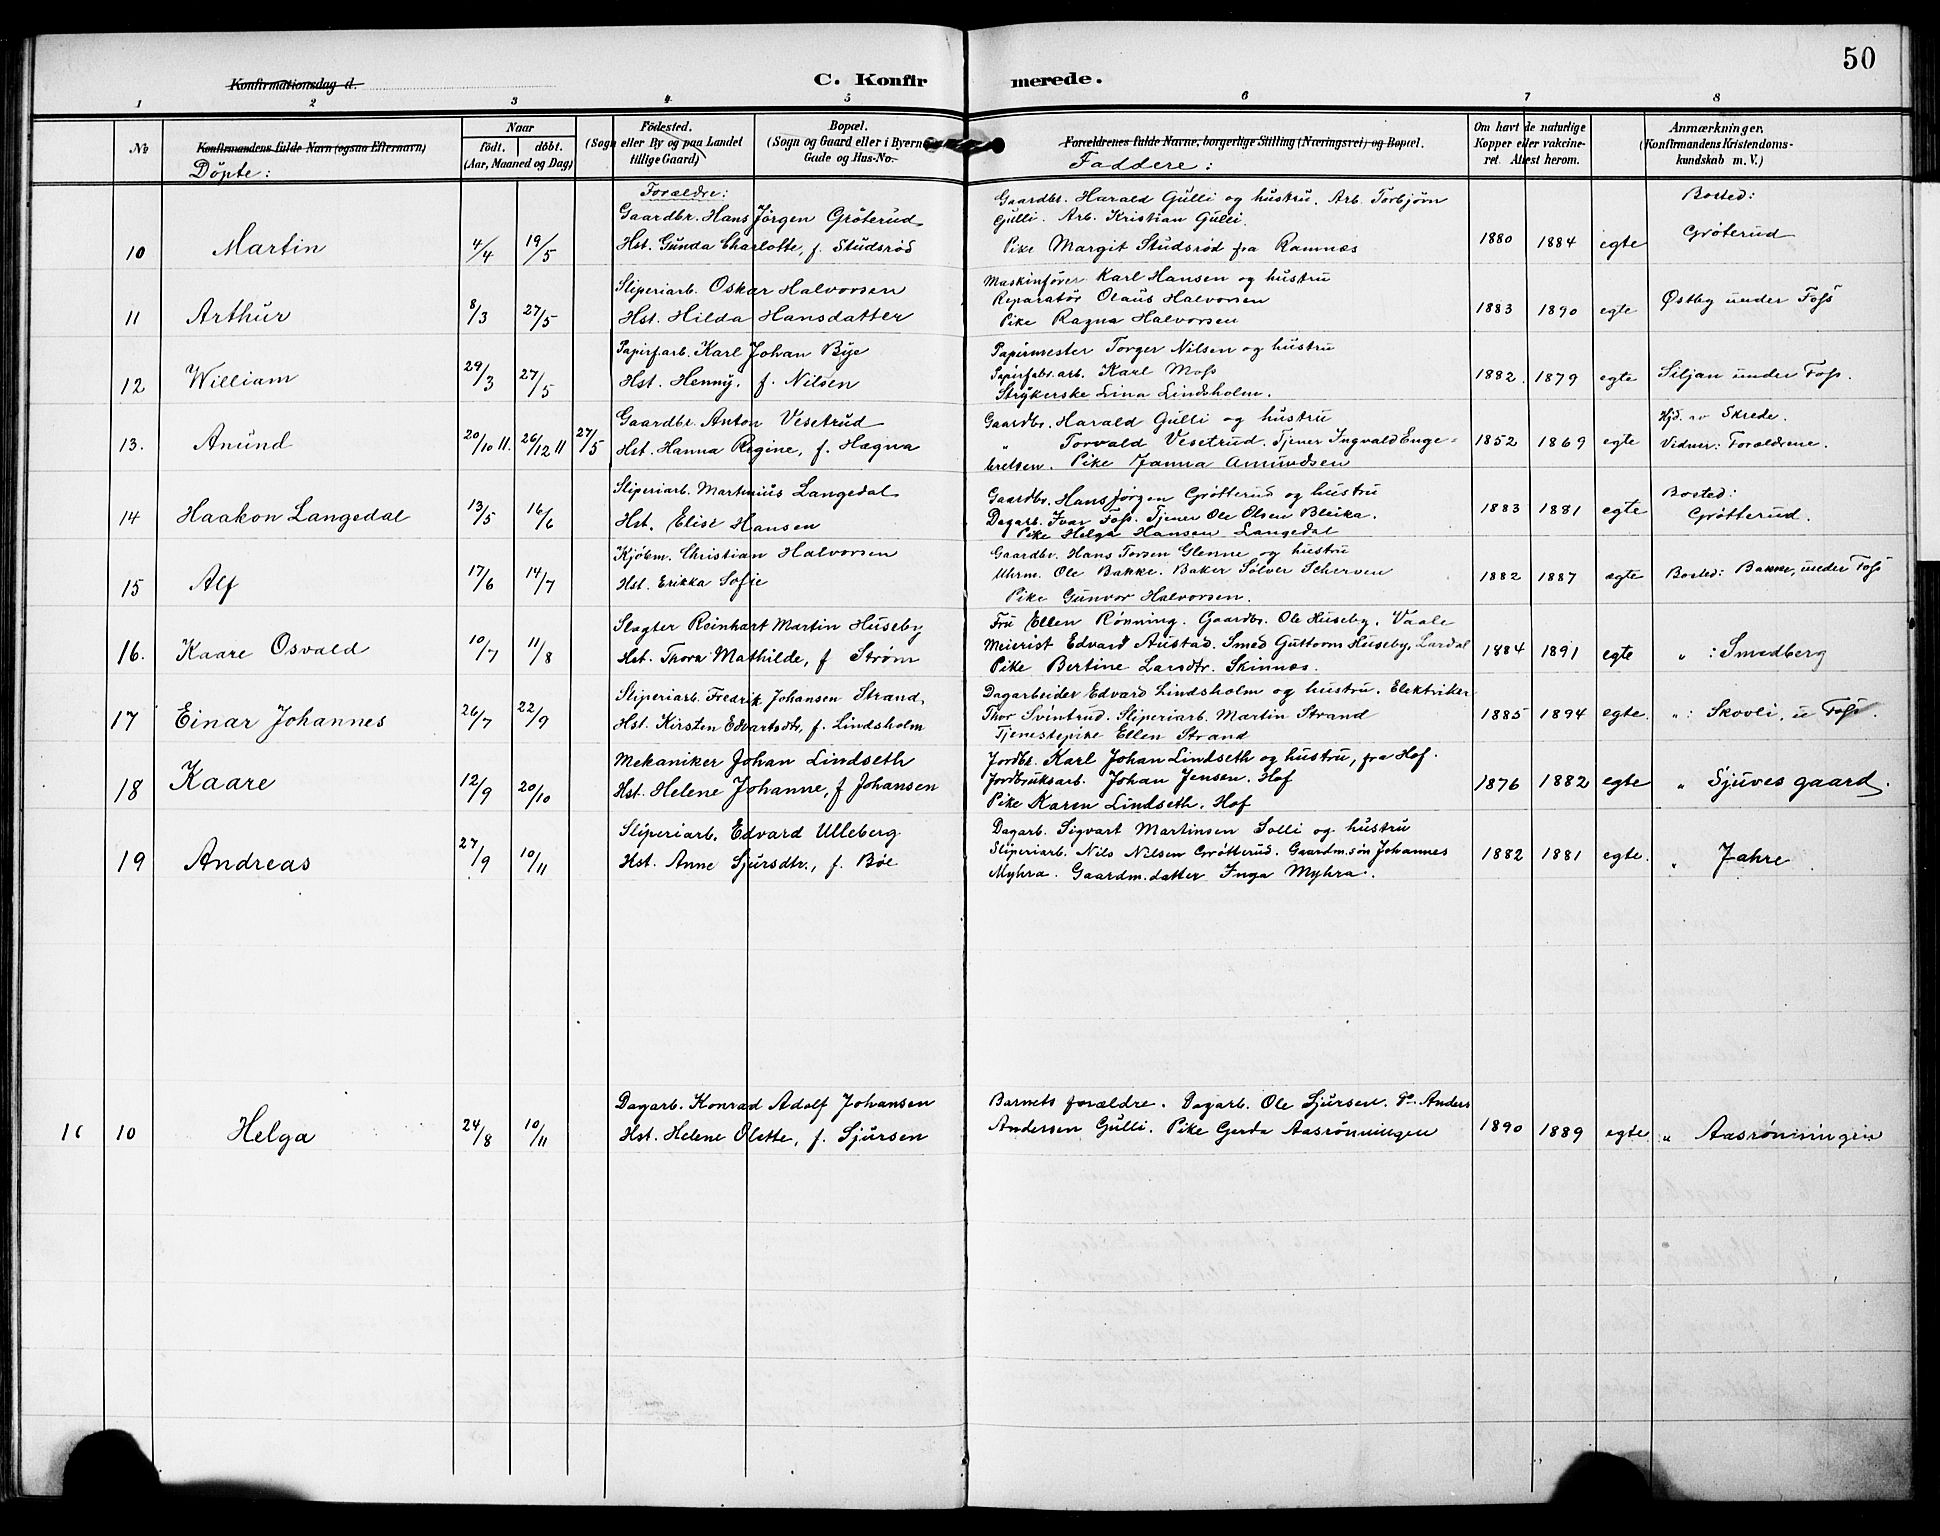 50
Konfirmationsdag d.
C. Konfir merede.
1 2 3 4 5 6 7 8
No
Konfirmandens fulde Navn (ogsaa Efternavn)
Döpte:
Naar
födt. döbt.
(Aar, Maaned og Dag)
Födested.
(Sogn eller By og paa Landet
tillige Gaard)
Bopæl.
(Sogn og Gaard eller i Byerne
Gade og Hus-No.
Forældrenes fulde Navne, borgerlige Stilling (Næringsvei) og Bopæl.
Faddere:
Om havt de naturlige
Kopper eller vakcine-
ret. Attest herom.
Anmærkninger.
(Konfirmandens Kristendoms-
kundskab m. V.)
Forældre:
Bosted:
Gaardbr. Hans Jörgen Gröterud
Gaardbr. Harald Gulli og hustru. Arb. Torbjörn
Gulli. Arb. Kristian Gulli.
10 Martin 4/4 19/5 Hst. Gunda Charlotte, f. Studsröd
Pike Margit Studsröd fra Ramnæs 1880 1884 egte Gröterud
Sliperiarb. Oskar Halvorsen
Maskinförer Karl Hansen og hustru
Reparatör Olaus Halvorsen
11 Arthur 8/3 27/5 Hst. Hilda Hansdatter
Pike Ragna Halvorsen 1883 1890 egte Østby under Foss
Papirf.arb. Karl Johan Bye
Papirmester Torger Nilsen og hustru
Papirfabr.arb. Karl Moss
12 William 29/3 27/5 Hst. Henny, f. Nilsen
Strykerske Lina Lindsholm. 1882. 1879 egte Siljan under Foss.
Gaardbr. Anton Vesetrud
Gaardbr. Harald Gulli og hustru
Hjd. av Skrede.
13. Anund 20/10 11. 26/12 11 27/5 Hst. Hanna Regine, f. Hægna
" Torvald Vesetrud. Tjener Ingvald Enge- 1852 1869 egte Vidner: Forældrene.
bretsen. Pike Janna Amundsen
Sliperiarb. Martinius Langedal
Gaardbr. Hans Jörgen Grötterud og hustru
Bosted:
14 Haakon Langedal 13/5 16/6 Hst. Elise Hansen
Dagarb. Ivar Foss. Tjener Ole Olsen Bleika. 1883 1881 egte Grötterud.
Pike Helga Hansen Langedal
Kjöbm. Christian Halvorsen
Gaardbr. Hans Torsen Glenne og hustru
15 Alf 17/6 14/7 Hst. Erikka Sofie
Uhrm. Ole Bakke. Baker Sölver Scherven 1882 1887 ægte Bosted: Bakke, under Foss
Pike Gunvor Halvorsen.
Slagter Reinhart Martin Huseby
Fru Ellen Rönning. Gaardbr. Ole Huseby. Vaale
16. Kaare Osvald 10/7 11/8 Hst. Thora Mathilde, f Ström
Meierist Edvard Austad. Smed Guttorm Huseby, Lardal 1884 1891 egte " : Smedberg
Pike Bertine Larsdtr. Skinnæs.
Sliperiarb. Fredrik Johansen Strand,
Dagarbeider Edvard Lindsholm og hustru. Elektriker
17 Einar Johannes 26/7 22/9 Hst. Kirsten Edvartsdtr, f. Lindsholm
Thor Svintrud. Sliperiarb. Martin Strand 1885 1894 egte. " : Skovli, u Foss.
Tjenestepike Ellen Strand
Mekaniker Johan Lindseth
Jordbr. Karl Johan Lindseth og hustru, fra Hof.
18 Kaare 12/9 20/10 Hst. Helene Johanne, f Johansen
Jordbruksarb. Johan Jensen. Hof 1876 1882 egte " Sjuvesgaard.
Pike Karen Lindseth. Hof
Sliperiarb. Edvard Ulleberg
Dagarb. Sigvart Martinsen Solli og hustru
19 Andreas 27/9 10/11 Hst. Anne Sjursdtr., f. Böe
Sliperiarb. Nils Nilsen Grötterud. Gaardm.sön Johannes 1882 1881 egte. " Jahre
Myhra. Gaardm.datter Inga Myhra.
Dagarb. Konrad Adolf Johansen
Barnets forældre. Dagarb. Ole Sjursen. Do Anders
16 10 Helga 24/8 10/11 Hst. Helene Olette, f. Sjursen
Andersen Gulli. Pike Gerda Aasrönningen 1890 1889 egte " Aasrönningen